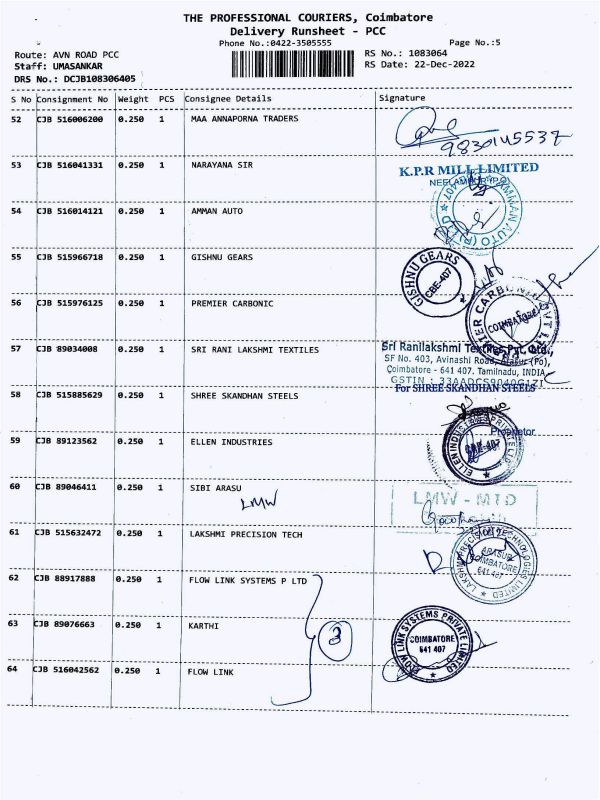 THE PROFESSIONAL COURIERS, Coimbatore
Delivery Runsheet - PCC
Phone No.:0422-3505555 Page No.:5
Route: AVN ROAD PCC RS No.: 1083064
Staff: UMASANKAR RS Date: 22-Dec-2022
DRS No.: DCJB108306405
S No Consignment No Weight PCS Consignee Details Signature
52 CJB 516006200 0.250 1 MAA ANNAPORNA TRADERS
9830145537
53 CJB 516041331 0.250 1 NARAYANA SIR K.P.R MILL LIMITED
54 CJB 516014121 0.250 1 AMMAN AUTO
55 CJB 515966718 0.250 1 GISHNU GEARS GISHNU GEARS
CBE-407
56 CJB 515976125 0.250 1 PREMIER CARBONIC
COIMBATORE
57 CJB 89034008 0.250 1 SRI RANI LAKSHMI TEXTILES Sri Ranilakshmi Textiles Pvt. Ltd.,
SF No. 403, Avinashi Road, Arasur (Po),
Coimbatore - 641 407. Tamilnadu, INDIA
GSTIN : 33AADCS9040G1ZI
58 CJB 515885629 0.250 1 SHREE SKANDHAN STEELS For SHREE SKANDHAN STEELS
Proprietor
59 CJB 89123562 0.250 1 ELLEN INDUSTRIES ELLEN INDUSTRIES PRIVATE LTD
CBE-407
60 CJB 89046411 0.250 1 SIBI ARASU LMW - MTD
LMW
61 CJB 515632472 0.250 1 LAKSHMI PRECISION TECH LAKSHMI PRECISION TECHNOLOGIES LIMITED
ARASUR
COIMBATORE
641 407
62 CJB 88917888 0.250 1 FLOW LINK SYSTEMS P LTD
63 CJB 89076663 0.250 1 KARTHI FLOW LINK SYSTEMS PRIVATE LIMITED
3 COIMBATORE
641 407
64 CJB 516042562 0.250 1 FLOW LINK